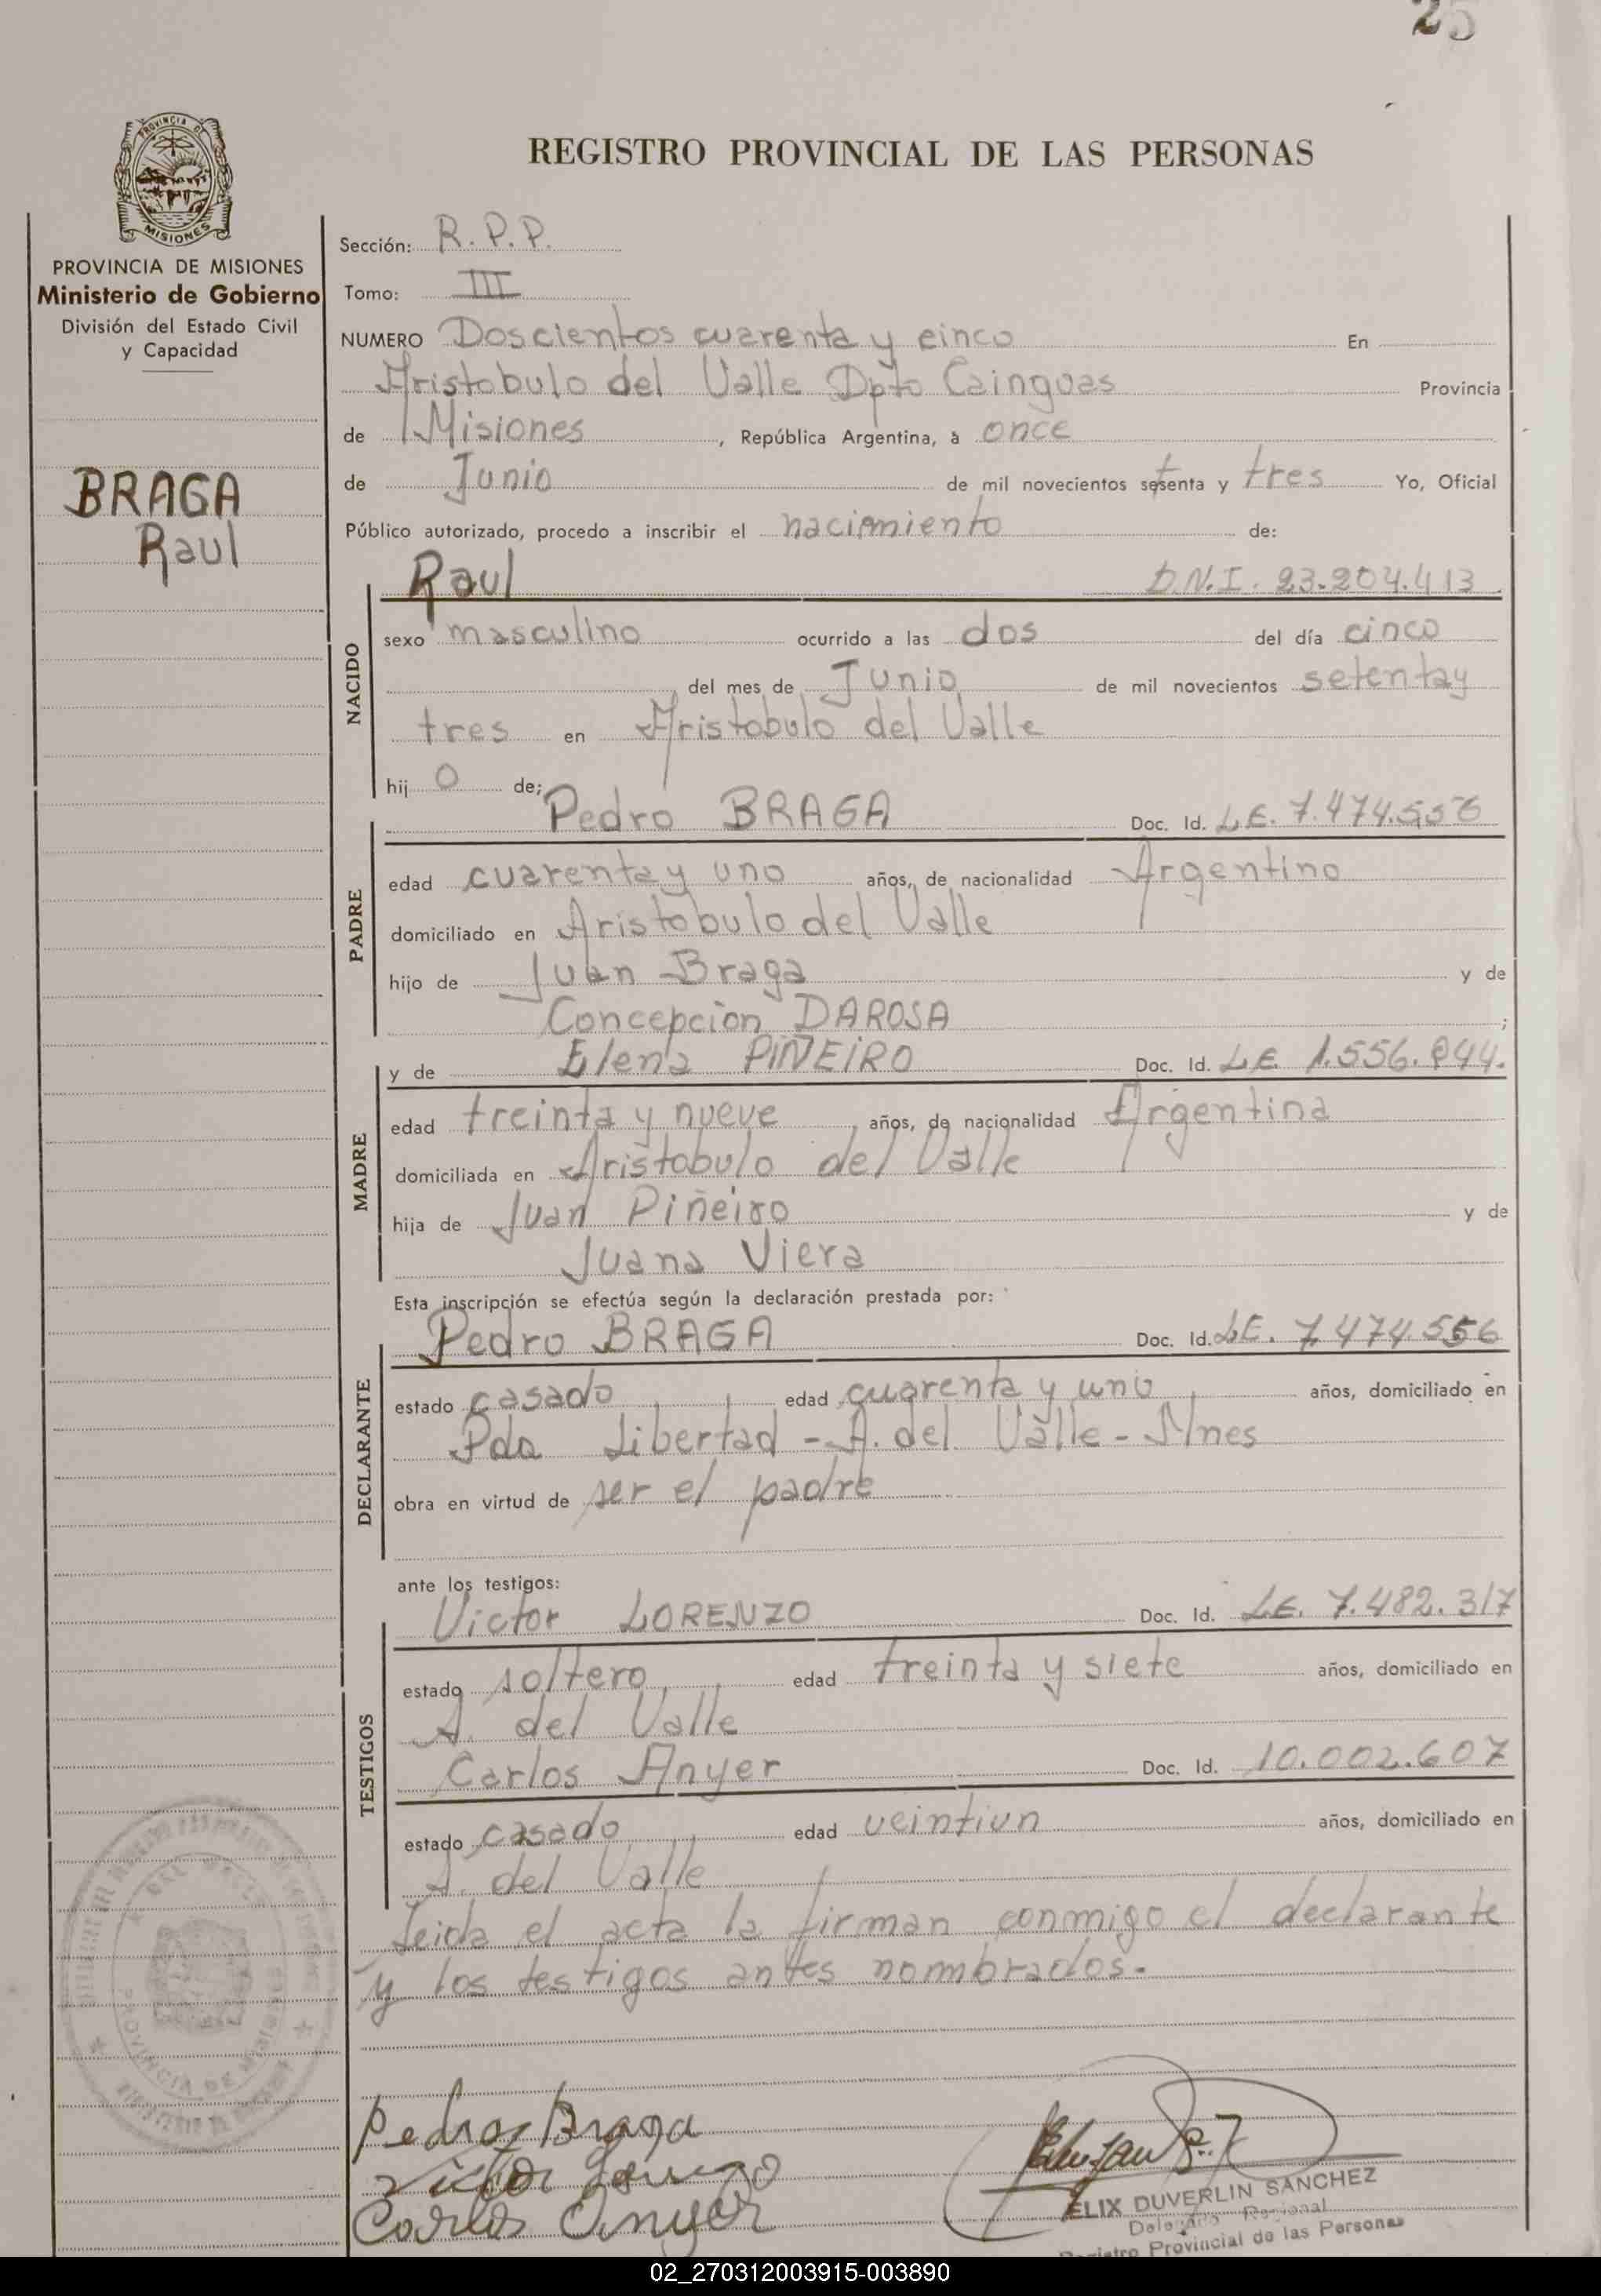 25
PROVINCIA DE
MISIONES
REGISTRO PROVINCIAL DE LAS PERSONAS
PROVINCIA DE MISIONES
Ministerio de Gobierno
División del Estado Civil
y Capacidad
BRAGA
Raul
Sección: R.P.P.
Tomo: III
NUMERO Doscientos cuarenta y cinco En
Aristobulo del Valle Dpto Cainguas Provincia
de Misiones, República Argentina, a once
de Junio de mil novecientos setenta y tres Yo, Oficial
Público autorizado, procedo a inscribir el nacimiento de:
Raul D.N.I. 23.204.413
NACIDO
sexo masculino ocurrido a las dos del día cinco
del mes de Junio de mil novecientos setenta y
tres en Aristobulo del Valle
hij o de;
Pedro BRAGA Doc. Id. L.E. 7.474.556
PADRE
edad cuarenta y uno años, de nacionalidad Argentino
domiciliado en Aristobulo del Valle
hijo de Juan Braga y de
Concepcion DAROSA ;
y de Elena PIÑEIRO Doc. Id. L.E. 1.556.844.
MADRE
edad treinta y nueve años, de nacionalidad Argentina
domiciliada en Aristobulo del Valle
hija de Juan Piñeiro y de
Juana Viera
Esta inscripción se efectúa según la declaración prestada por:
Pedro BRAGA Doc. Id. L.E. 7.474.556
DECLARANTE
estado casado edad cuarenta y uno años, domiciliado en
Pda Libertad - A. del Valle - Mnes
obra en virtud de ser el padre
ante los testigos:
Victor LORENZO Doc. Id. L.E. 7.482.317
TESTIGOS
estado soltero edad treinta y siete años, domiciliado en
A. del Valle
Carlos Anyer Doc. Id. 10.002.607
estado casado edad veintiun años, domiciliado en
A. del Valle
Leida el acta la firman conmigo el declarante
y los testigos antes nombrados.
PROVINCIA DE MISIONES
Pedro Braga
Victor Lorenzo
Carlos Anyer
ELIX DUVERLIN SANCHEZ
Delegado Regional
Registro Provincial de las Personas
02_270312003915-003890